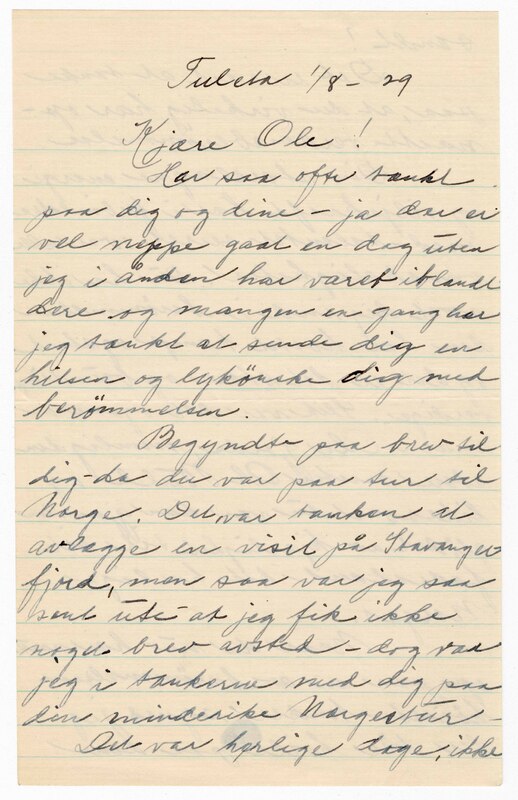 Tulsta 1/8 - 29
Kjære Ole!
Har saa ofte tænkt
paa dig og dine - ja der er
vel neppe gaat en dag uten
jeg i ånden har været iblandt
dere og mangen en gang har
jeg tænkt at sende dig en
hilsen og lykönske dig med
berömmelsen.
Begyndte paa brev til
dig da du var paa tur til
Norge. Det var tanken at
avlægge en visit på Stavanger
fjord, men saa var jeg saa
sent ute at jeg fik ikke
noget brev avsted - dog var
jeg i tankerne med dig paa
den minderike Norgestur -
Det var herlige dage, ikke